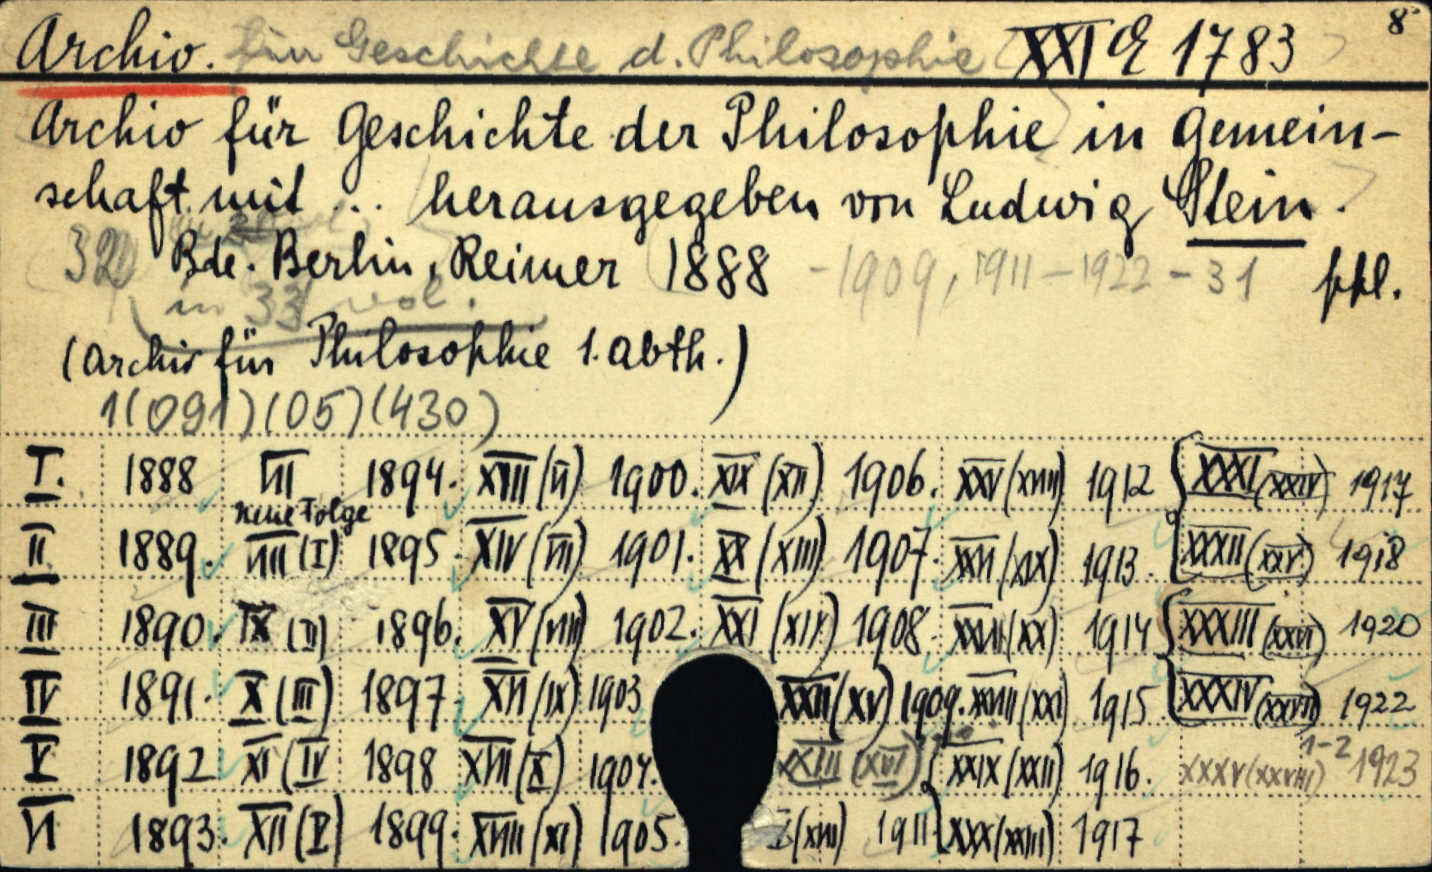 Archiv. für Geschichte d. Philosophie XXI E 1783 8°
Archiv für Geschichte der Philosophie in Gemein-
schaft mit ... herausgegeben von Ludwig Stein.
32 Bde. Berlin, Reimer 1888 - 1909, 1911 - 1922 - 31 ppl.
in 33 vol.
(Archiv für Philosophie 1. Abth.)
1(091)(05)(430)
I. 1888 VII 1894. XIII (VI) 1900. XIX (XII) 1906. XXV (XVIII) 1912 XXXI (XXIV) 1917
Neue Folge
II 1889. VIII (I) 1895. XIV (VII) 1901. XX (XIII) 1907. XXVI (XIX) 1913. XXXII (XXV) 1918
III 1890. IX (II) 1896. XV (VIII) 1902. XXI (XIV) 1908. XXVII (XX) 1914 XXXIII (XXVI) 1920
IV 1891. X (III) 1897. XVI (IX) 1903 XXII (XV) 1909. XXVIII (XXI) 1915 XXXIV (XXVII) 1922
V 1892 XI (IV 1898 XVII (X) 1904. XXIII (XVI) XXIX (XXII) 1916. XXXV (XXVIII) 1-2 1923
VI 1893. XII (V) 1899. XVIII (XI) 1905. (XVII) 1911 XXX (XXIII) 1917